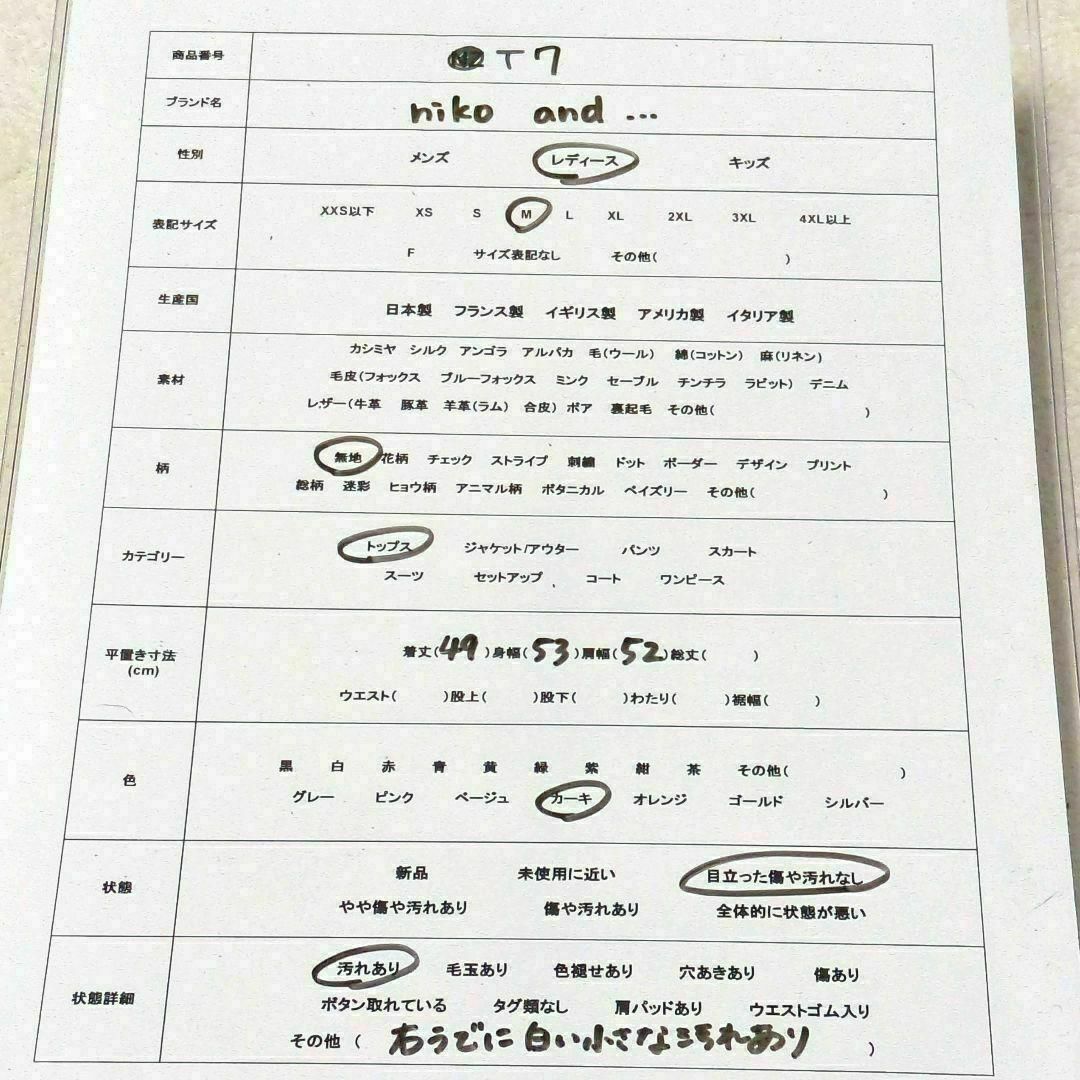 商品番号 T 7
ブランド名 niko and ...
性別 メンズ レディース キッズ
表記サイズ XXS以下 XS S M L XL 2XL 3XL 4XL以上
F サイズ表記なし その他( )
生産国 日本製 フランス製 イギリス製 アメリカ製 イタリア製
素材 カシミヤ シルク アンゴラ アルパカ 毛(ウール) 綿(コットン) 麻(リネン)
毛皮(フォックス ブルーフォックス ミンク セーブル チンチラ ラビット) デニム
レザー(牛革 豚革 羊革(ラム) 合皮) ボア 裏起毛 その他( )
柄 無地 花柄 チェック ストライプ 刺繍 ドット ボーダー デザイン プリント
総柄 迷彩 ヒョウ柄 アニマル柄 ボタニカル ペイズリー その他( )
カテゴリー トップス ジャケット/アウター パンツ スカート
スーツ セットアップ コート ワンピース
平置き寸法 着丈(49)身幅(53)肩幅(52)総丈( )
(cm) ウエスト( )股上( )股下( )わたり( )裾幅( )
色 黒 白 赤 青 黄 緑 紫 紺 茶 その他( )
グレー ピンク ベージュ カーキ オレンジ ゴールド シルバー
状態 新品 未使用に近い 目立った傷や汚れなし
やや傷や汚れあり 傷や汚れあり 全体的に状態が悪い
状態詳細 汚れあり 毛玉あり 色褪せあり 穴あきあり 傷あり
ボタン取れている タグ類なし 肩パッドあり ウエストゴム入り
その他 ( 右うでに白い小さな汚れあり )